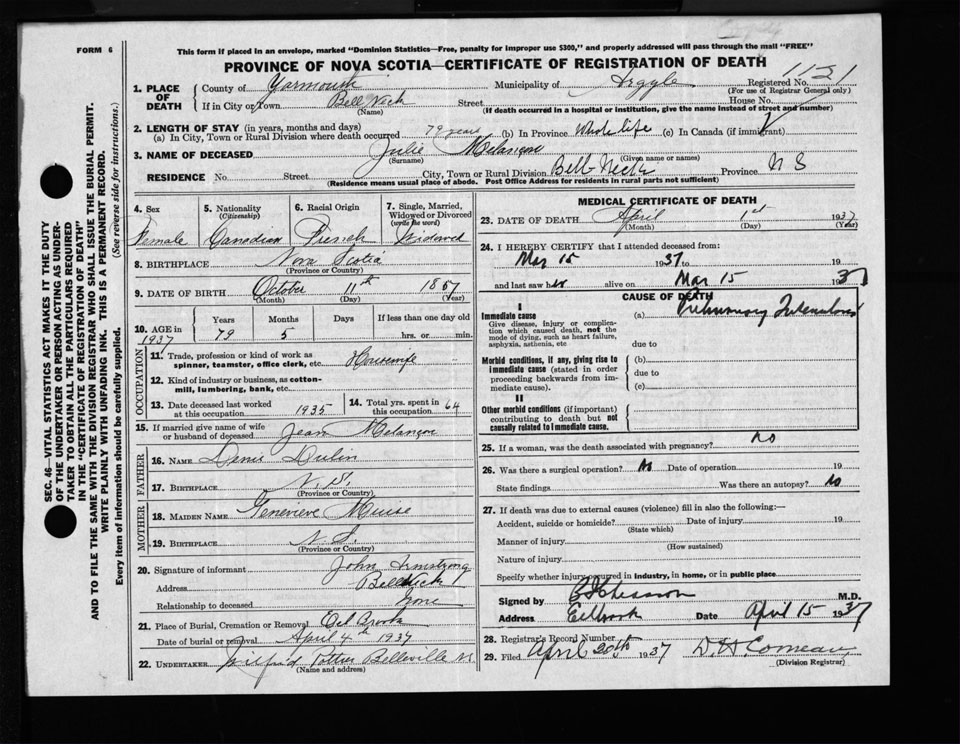 FORM 6
This form if placed in an envelope, marked "Dominion Statistics—Free, penalty for improper use $300," and properly addressed will pass through the mail "FREE"
PROVINCE OF NOVA SCOTIA—CERTIFICATE OF REGISTRATION OF DEATH
1. PLACE OF DEATH
County of Yarmouth Municipality of Argyle Registered No. 1121
(For use of Registrar General only)
If in City or Town Bell Neck Street House No.
(Name) (If death occurred in a hospital or institution, give the name instead of street and number)
2. LENGTH OF STAY (in years, months and days)
(a) In City, Town or Rural Division where death occurred 79 years (b) In Province Whole life (c) In Canada (if immigrant)
3. NAME OF DECEASED Julie Melançon
(Surname) (Given name or names)
RESIDENCE No. Street City, Town or Rural Division Bell Neck Province N S
(Residence means usual place of abode. Post Office Address for residents in rural parts not sufficient)
4. Sex Female
5. Nationality (Citizenship) Canadian
6. Racial Origin French
7. Single, Married, Widowed or Divorced (write the word) Widowed
8. BIRTHPLACE Nova Scotia
(Province or Country)
9. DATE OF BIRTH October 11th 1857
(Month) (Day) (Year)
10. AGE in 1937
Years Months Days If less than one day old
79 5 hrs. or min.
OCCUPATION
11. Trade, profession or kind of work as spinner, teamster, office clerk, etc. Housewife
12. Kind of industry or business, as cotton-mill, lumbering, bank, etc.
13. Date deceased last worked at this occupation 1935
14. Total yrs. spent in this occupation 64
15. If married give name of wife or husband of deceased Jean Melançon
FATHER
16. NAME Denis Dulin
17. BIRTHPLACE N. S.
(Province or Country)
MOTHER
18. MAIDEN NAME Genevieve Muise
19. BIRTHPLACE N. S.
(Province or Country)
20. Signature of informant John Armstrong
Address Belleneck
Relationship to deceased None
21. Place of Burial, Cremation or Removal Eel Brook
Date of burial or removal April 4th 1937
22. UNDERTAKER Wilfred Pothier Belleville NS
(Name and address)
MEDICAL CERTIFICATE OF DEATH
23. DATE OF DEATH April 1st 1937
(Month) (Day) (Year)
24. I HEREBY CERTIFY that I attended deceased from:
Mar 15 1937 to 19
and last saw her alive on Mar 15 1937
CAUSE OF DEATH
I
Immediate cause
Give disease, injury or complication which caused death, not the mode of dying, such as heart failure, asphyxia, asthenia, etc
(a) Pulmonary Tuberculosis
due to
Morbid conditions, if any, giving rise to immediate cause (stated in order proceeding backwards from immediate cause).
(b)
due to
(c)
II
Other morbid conditions (if important) contributing to death but not causally related to immediate cause.
25. If a woman, was the death associated with pregnancy? no
26. Was there a surgical operation? No Date of operation 19
State findings Was there an autopsy? No
27. If death was due to external causes (violence) fill in also the following:—
Accident, suicide or homicide? Date of injury 19
(State which)
Manner of injury
(How sustained)
Nature of injury
Specify whether injury occurred in industry, in home, or in public place
Signed by Chiasson M.D.
Address Eelbrook Date April 15 1937
28. Registrar's Record Number
29. Filed April 20th 1937 D. H. Comeau
(Division Registrar)
SEC. 46—VITAL STATISTICS ACT MAKES IT THE DUTY
OF THE UNDERTAKER OR PERSON ACTING AS UNDER-
TAKER TO OBTAIN ALL THE PARTICULARS REQUIRED
IN THE "CERTIFICATE OF REGISTRATION OF DEATH"
AND TO FILE THE SAME WITH THE DIVISION REGISTRAR WHO SHALL ISSUE THE BURIAL PERMIT.
WRITE PLAINLY WITH UNFADING INK. THIS IS A PERMANENT RECORD.
Every item of information should be carefully supplied. (See reverse side for instructions.)